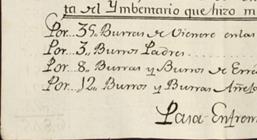 ta el Ymbentario que hizo m
Por.. 35, Burras de Vienere en las
Por.. 3,, Burros Padres
Por.. 8,, Burras y Burros de Erra
Por.. 12,, Burros y Burras Añejo
Para